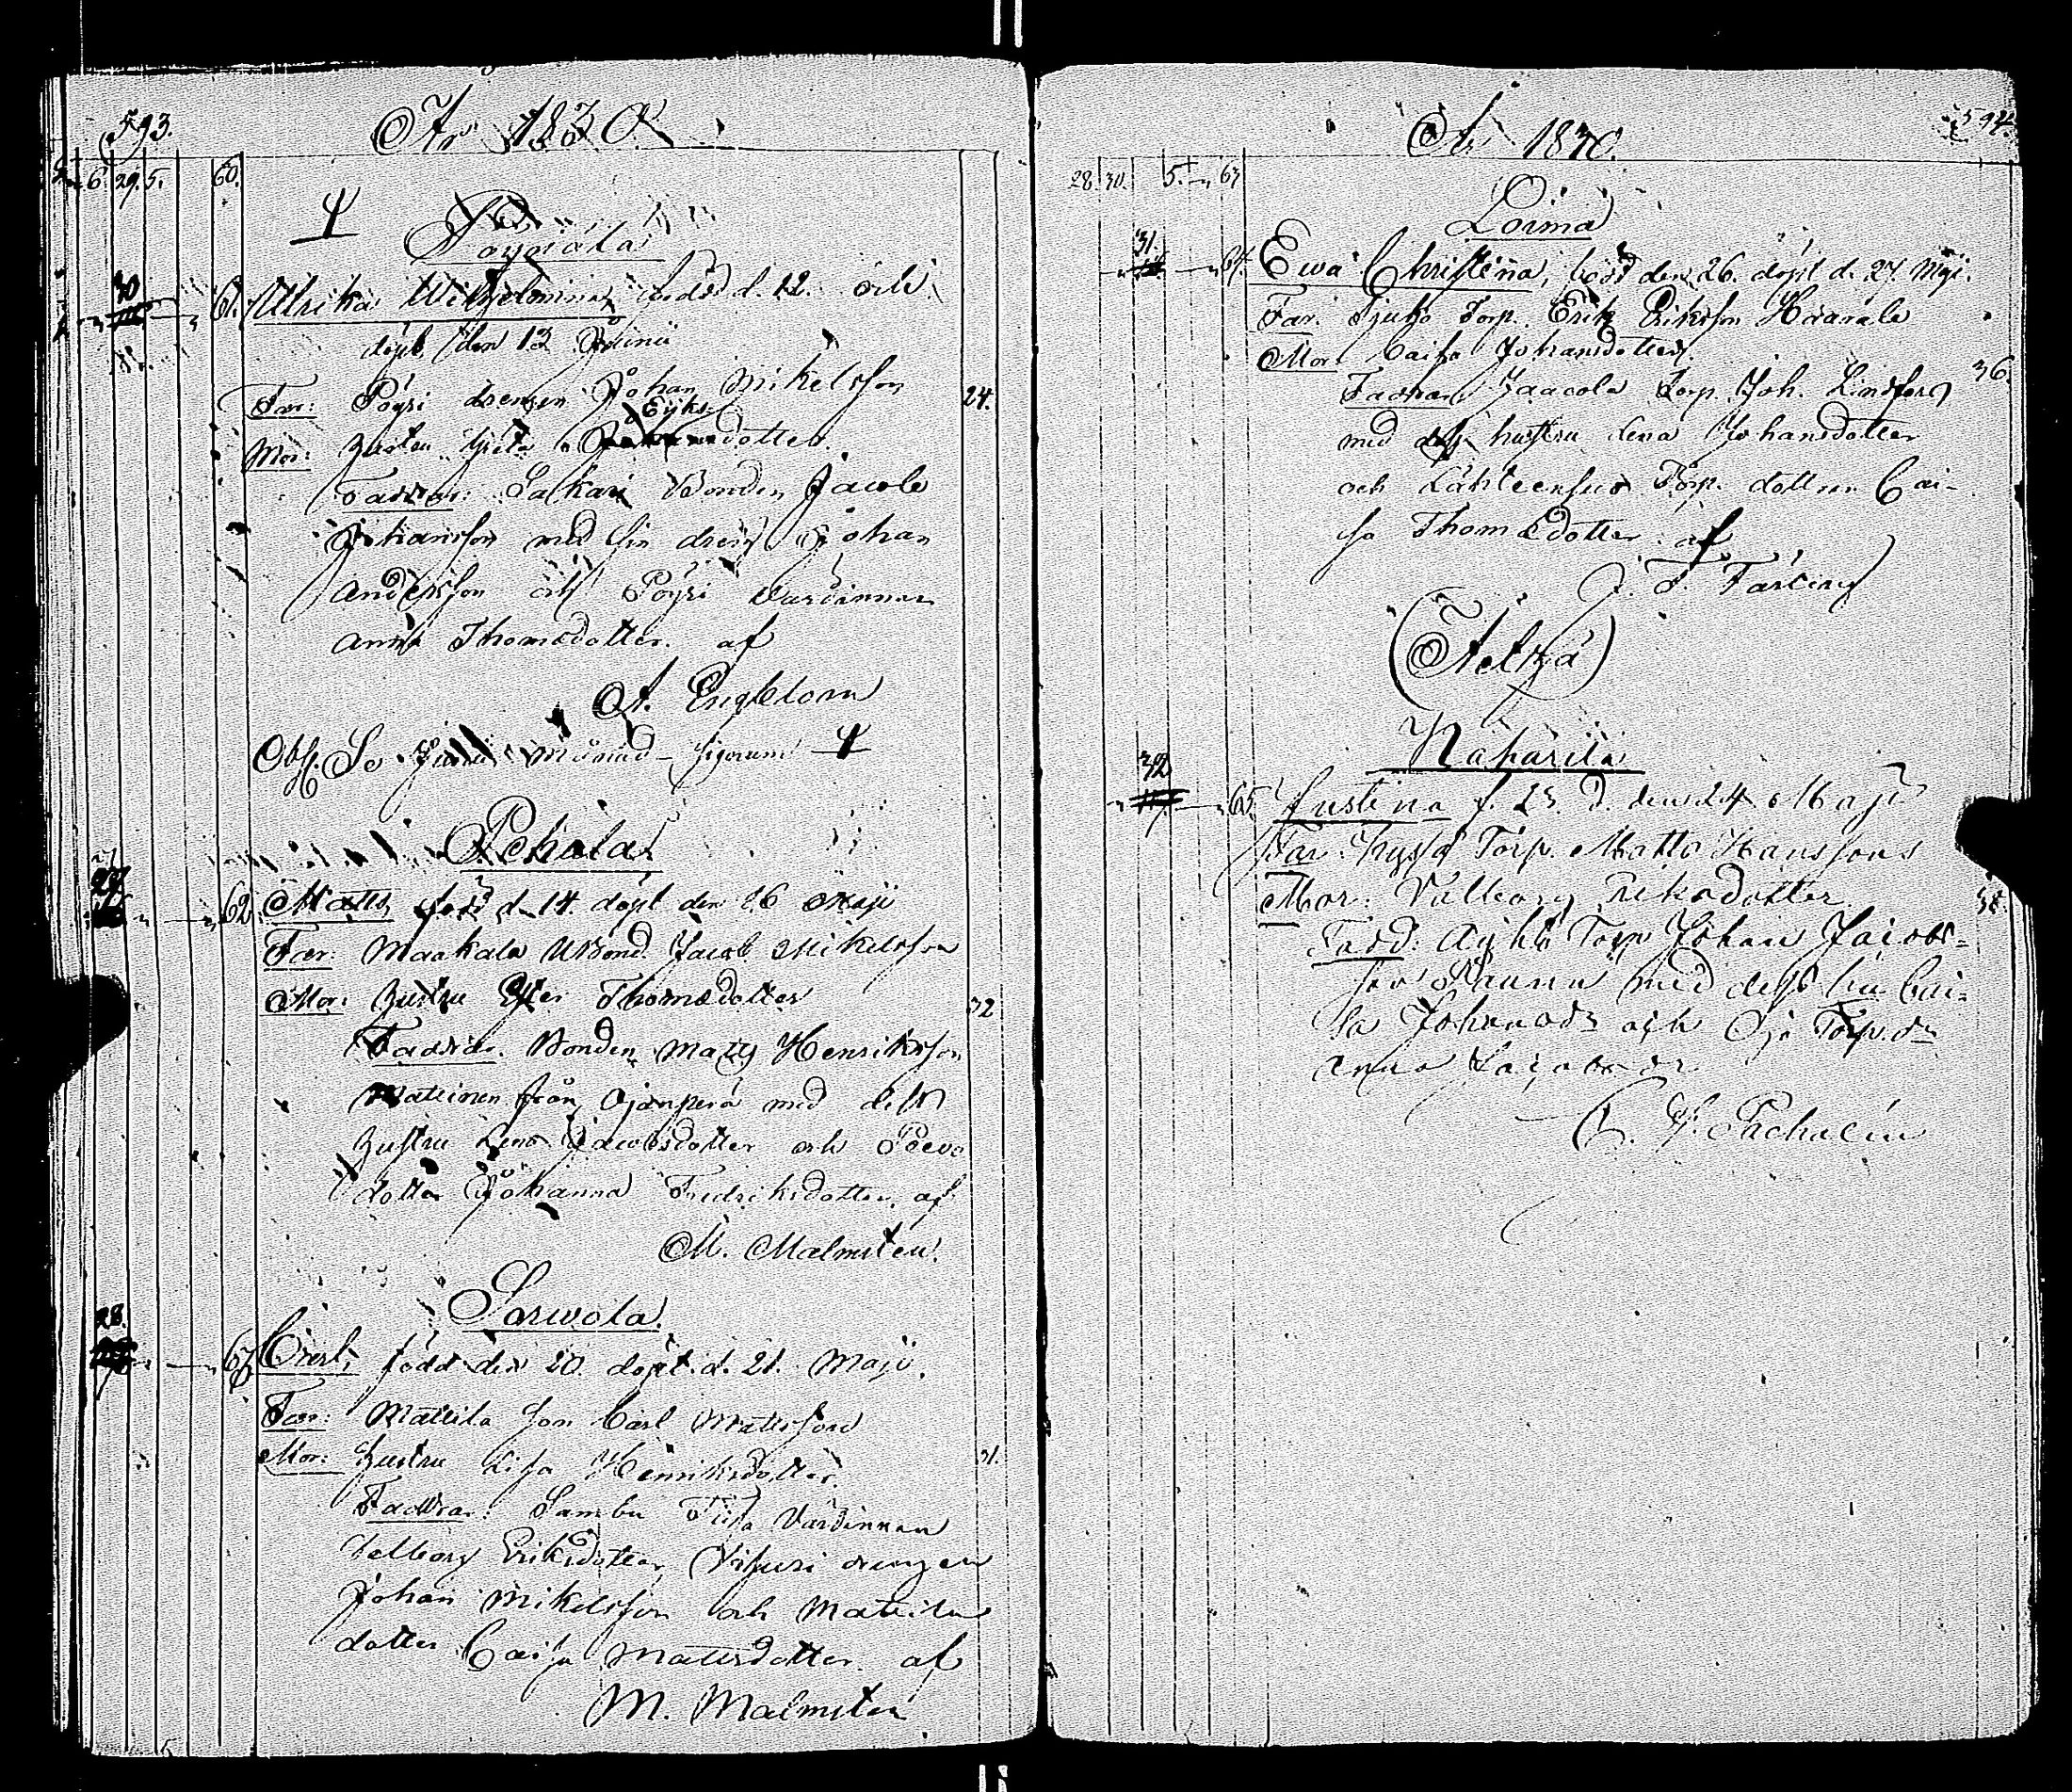 593.
År 1830.
6. 29. 5. 60.
Ulrika Wilhelmina född d. 12. och
30 61.
döpt den 13 Junii
Far: Pöyri drengen Johan Mikelsson
24.
Eriks
Mor: hustru dotter.
Faddrar: Bonden Jacob
Johansson med sin dreng Johan
Andersson och Pöyri värdinnan
Anna Thomædotter. af
A. Engblom
Obs. Se Junii Månad
Pekola
27 62. Matts, född d. 14. döpt den 16 Maji
Far: Maakala Bond. Jacob Mikelsson
Mor: hustru Thomædotter
32
Faddrar. Bonden Matts Henriksson
Matinen från Ojanperä med dess
hustru Lena Jacobsdotter och
dotter Johanna Fredriksdotter. af
M. Malmstén.
Sarwola.
28. 63 Carl, född den 20. döpt. d. 21. Maji.
Far: Mattila Son Carl Mattsson
Mor: hustru Lisa Henriksdotter.
31.
Faddrar: Värdinnan
Walborg Eriksdotter, drengen
Johan Mikelsson och Mattila
dotter Caisa Mattsdotter. af
M. Malmstén
594.
År 1830.
28. 30. 5. 63
Loima
31. 64. Ewa Christina, född den 26. döpt d. 27. Maji.
Far. Torp. Erik Eriksson Haarala
Mor. Caisa Johansdotter.
36.
Faddrar, Jaacola Torp. Joh. Lindfors
med dess hustru Lena Johansdotter
och Torp. dottren Cai-
sa Thomædotter. af
(Metzä)
Naharila
32 65. Justina f. 23. d. den 24 Maji
Far: Torp. Matts Hansson
Mor: Valborg Eriksdotter
Fadd: Torp Johan Jacobs-
son med dess hu Cai-
sa Johansdr och Oja Torp. dr
Anna